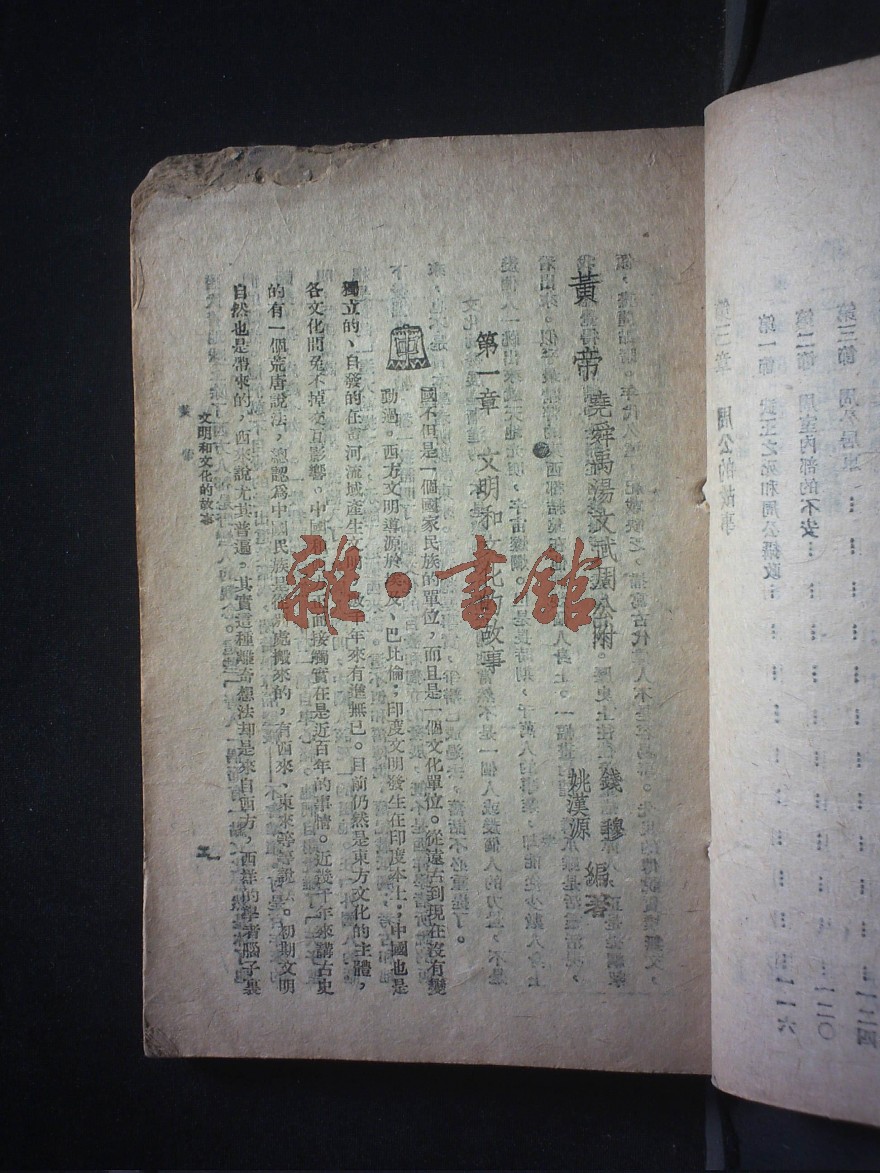 第三節 周公居東 一二四
第二節 周室內部的不安 一二〇
第一節 武王之死和周公攝政 一一六
第三章 周公的故事
黃帝 堯舜禹湯文武周公附
錢穆
姚漢源 編著
第一章 文明和文化的故事
中國不但是一個國家民族的單位，而且是一個文化單位。從遠古到現在沒有變
動過。西方文明導源於埃及、巴比倫；印度文明發生在印度本土。中國也是
獨立的、自發的在黃河流域產生文明，數千年來有進無已。目前仍然是東方文化的主體，
各文化間免不掉交互影響。中國和西方面接觸實在是近百年的事情。近幾十年來講古史
的有一個荒唐說法，總認爲中國民族是別處搬來的，有西來、東來等等說。初期文明
自然也是帶來的，西來說尤其普遍。其實這種離奇想法却是來自西方，西洋的學者腦子裏
黃帝
文明和文化的故事
一
雜·書館